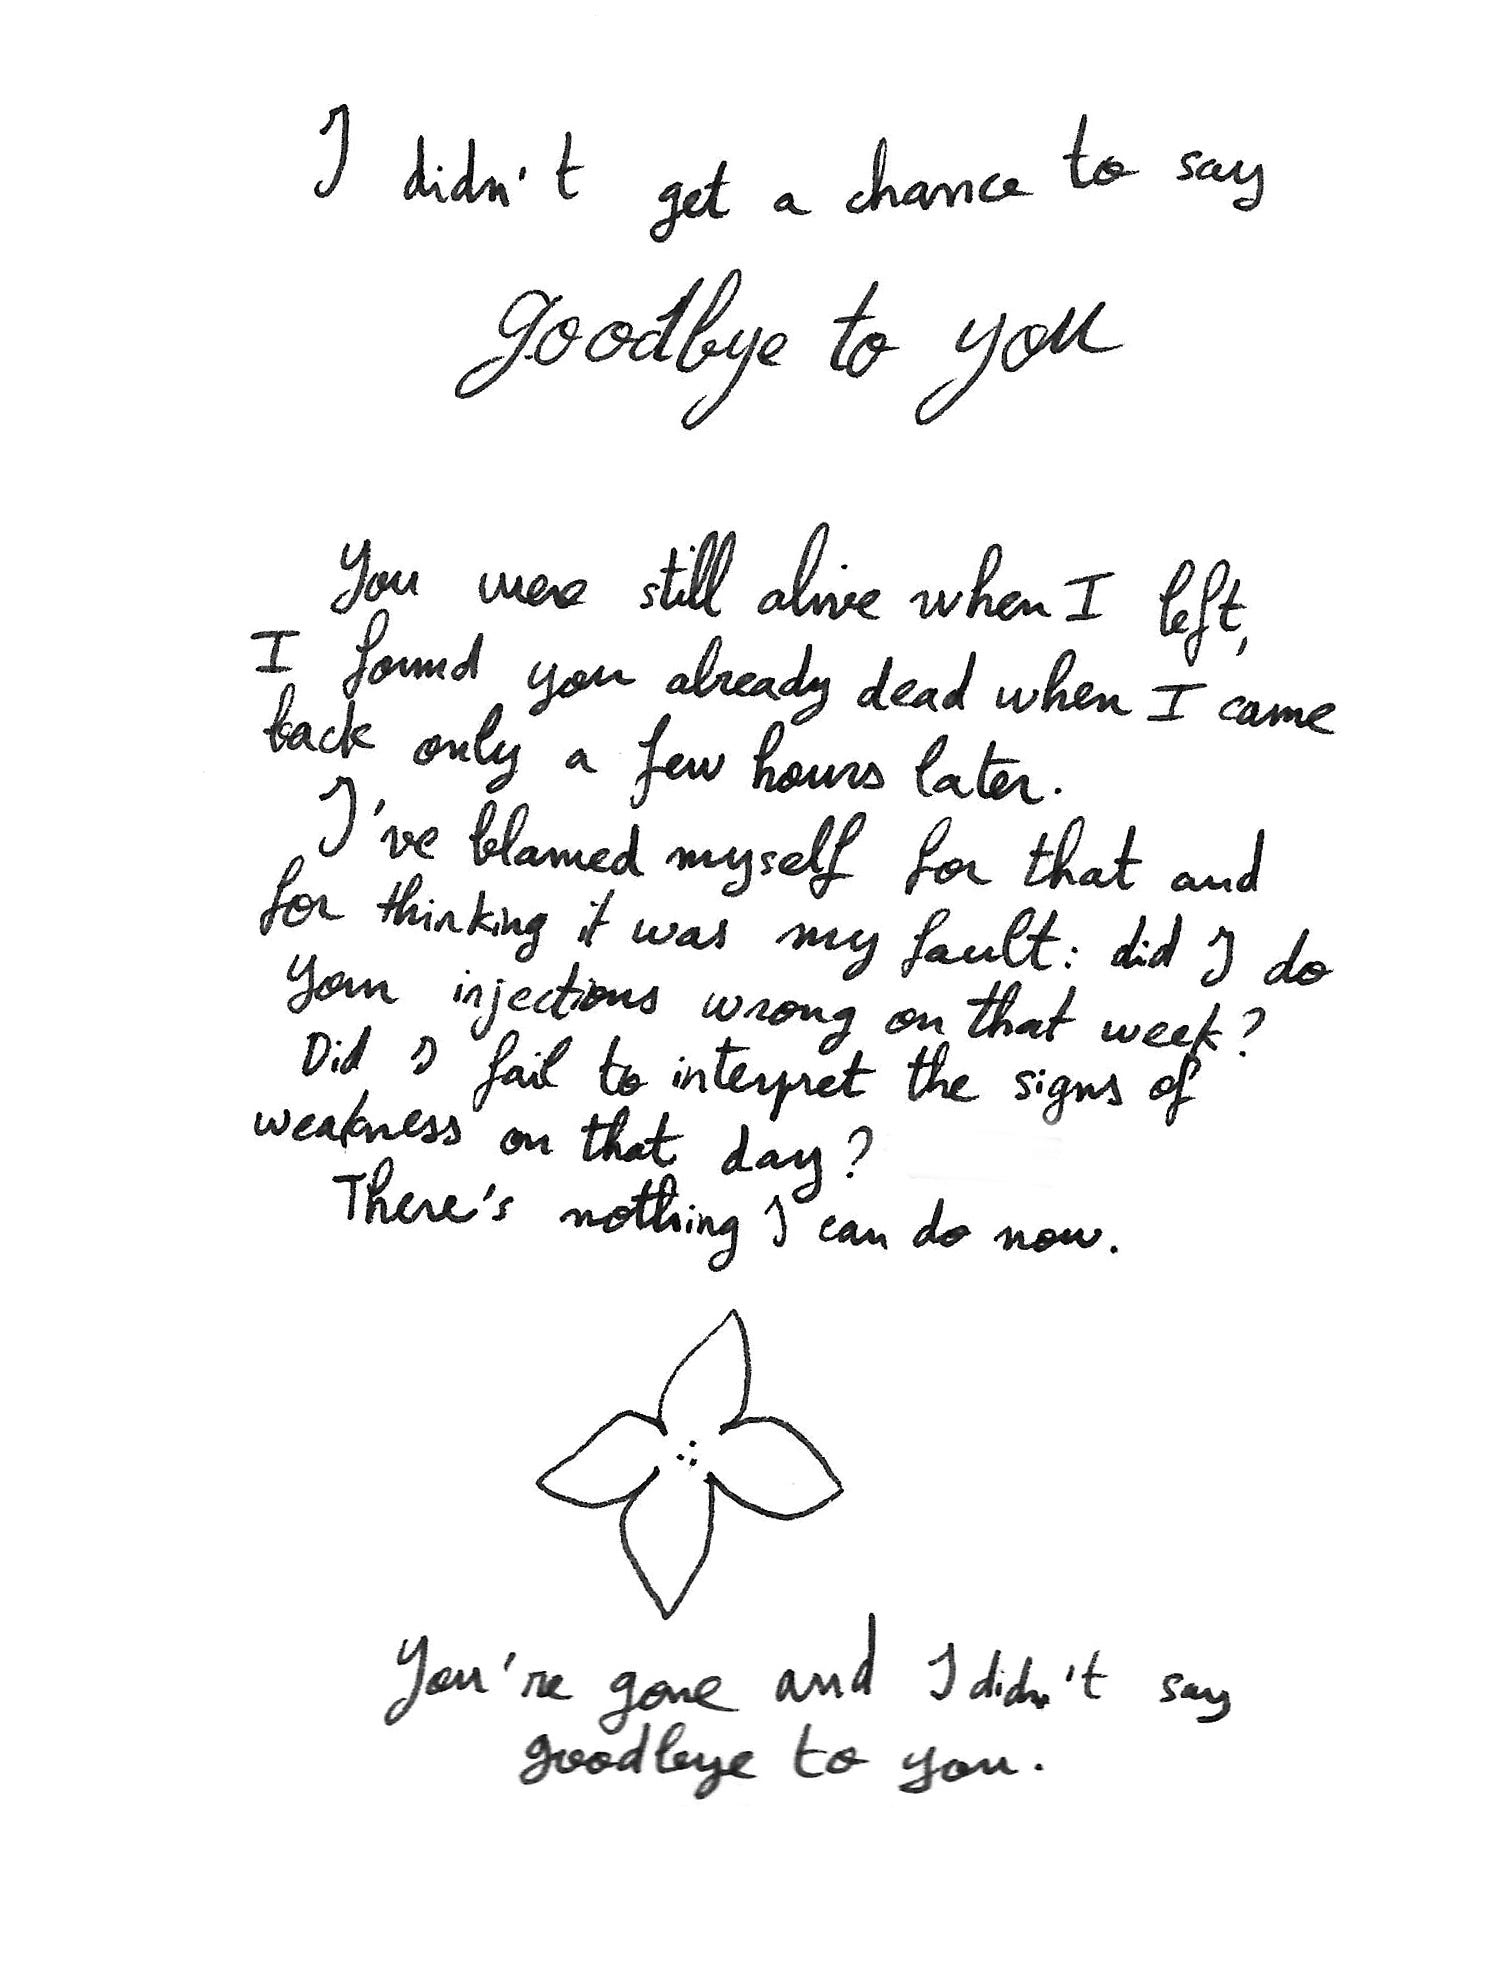 I didn't get a chance to say
goodbye to you
You were still alive when I left,
I found you already dead when I came
back only a few hours later.
I've blamed myself for that and
for thinking it was my fault: did I do
your injections wrong on that week?
Did I fail to interpret the signs of
weakness on that day?
There's nothing I can do now.
You're gone and I didn't say
goodbye to you.